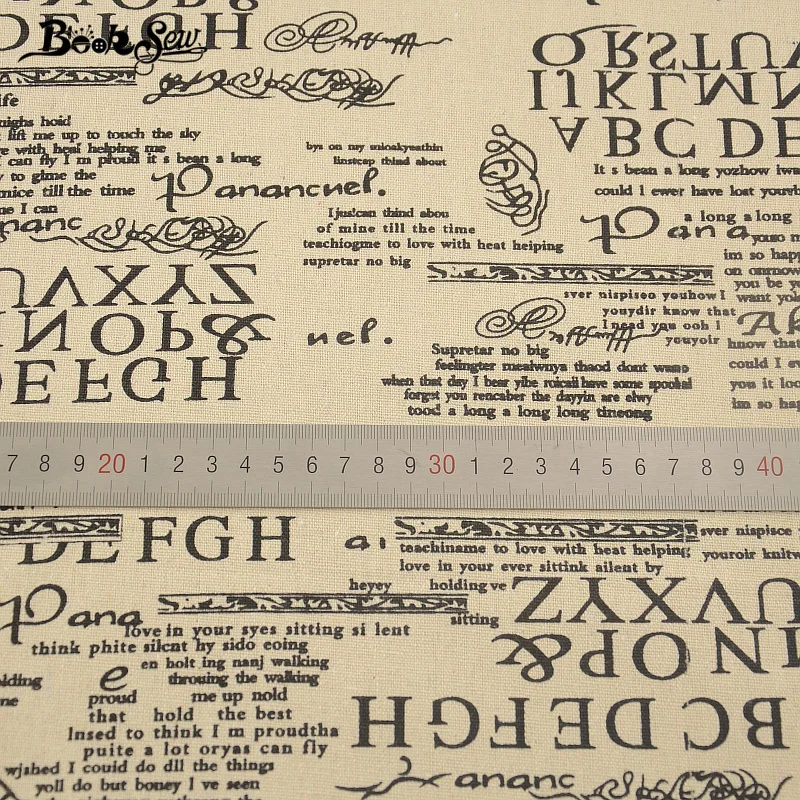 Book Sew
DEFGH
ife
nighs hoid
lift me up to touch the sky
e with heal helping me
can fly I m proud it s bean a long
y to gime the
mice till the time
me I can
Panancnel.
nanc
bys on my
linstcep thind about
I jus!can thind abou
of mine till the time
teachiogme to love with heat heiping
supretar no big
QRSTUV
IJKLMN
ABC DE
It s bean a long yozhow iwa
could I ewer have lost youvb
a long a long
Pana
youso m
im so happ
on onmow
you be yo
want yol
UVXYZ
NOP&
DE FGH
nel.
sver nispiseo youhow I
youydir know that
I nead you ooh I
youyoir
Ak
know that
could I ev
you it loo
im so hap
Supretar no big
feelingter mealwnys thaod dont wano
when that day I bear yibe roicall have some spookal
forget you rencaber the dayyin are elwy
tood a long a long long tineong
7 8 9 20 1 2 3 4 5 6 7 8 9 30 1 2 3 4 5 6 7 8 9 40
DEFGH
ai
sver nispisce
teachiname to love with heat helping
youroir knitw
love in your ever sittink ailent by
heyey
holding ve
sitting
Pana
love in your syes sitting si lent
think phite silcnt hy sido eoing
en holt ing nanj walking
e
throuing the walking
lding
ne
proud
me up nold
that hold the best
lnsed to think I m proudtha
puite a lot oryas can fly
wjshed I couid do dll the things
yoll do but boney I ve seen
UVXYZ
NOP&
BCDEFGH
ananc